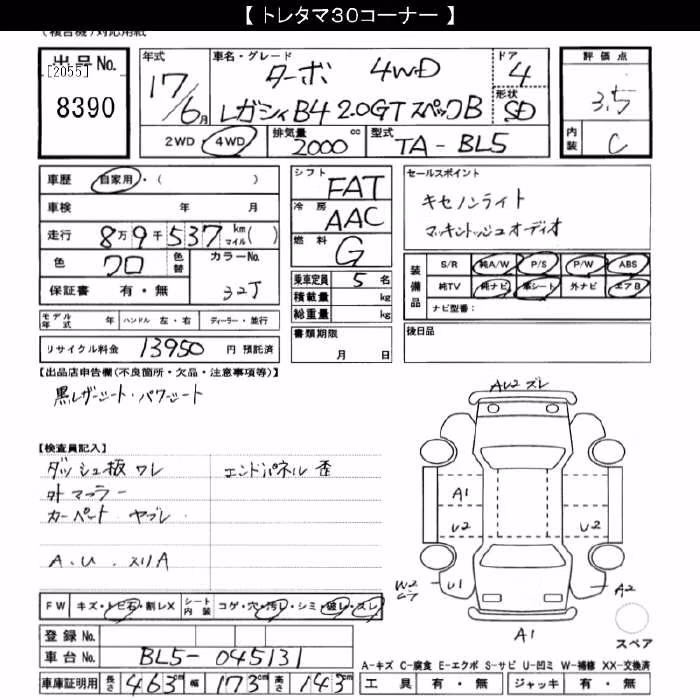 【 トレタマ30コーナー 】
(複合機)対応用紙
出品No.
[2055]
8390
年式
17/6月
車名・グレード
ターボ 4WD
レガシィB4 2.0GTスペックB
ドア
4
形状
SD
評価点
3.5
内装
C
2WD 4WD
排気量 2000 cc
型式 TA-BL5
車歴 自家用・( )
車検 年 月
走行 8万9千537 km マイル( )
色 クロ 色替 カラーNo. 32J
保証書 有・無
シフト FAT
冷房 AAC
燃料 G
乗車定員 5 名
積載量 kg
総重量 kg
セールスポイント
キセノンライト
マッキントッシュオーディオ
装備品
S/R 純A/W P/S P/W ABS
純TV 純ナビ 革シート 外ナビ エアB
ナビ型番:
モデル年式 年 ハンドル 左・右 ディーラー・並行
リサイクル料金 13950 円 預託済
書類期限
月 日
後日品
【出品店申告欄(不良箇所・欠品・注意事項等)】
黒レザーシート・パワーシート
【検査員記入】
ダッシュ板 ワレ
エンドパネル 歪
外マフラー
カーペット ヤブレ
A.U.スリA
AW2 ズレ
A1
U2
U2
W2
U1
A2
A1
スペア
FW キズ・トビ石・割レX シート内装 コゲ・穴・汚レ・シミ・破レ・スレ
登録No.
車台No. BL5-045131
車庫証明用 長さ 463 cm 幅 173 cm 高さ 143 cm
A-キズ C-腐食 E-エクボ S-サビ U-凹ミ W-補修 XX-交換済
工具 有・無 ジャッキ 有・無